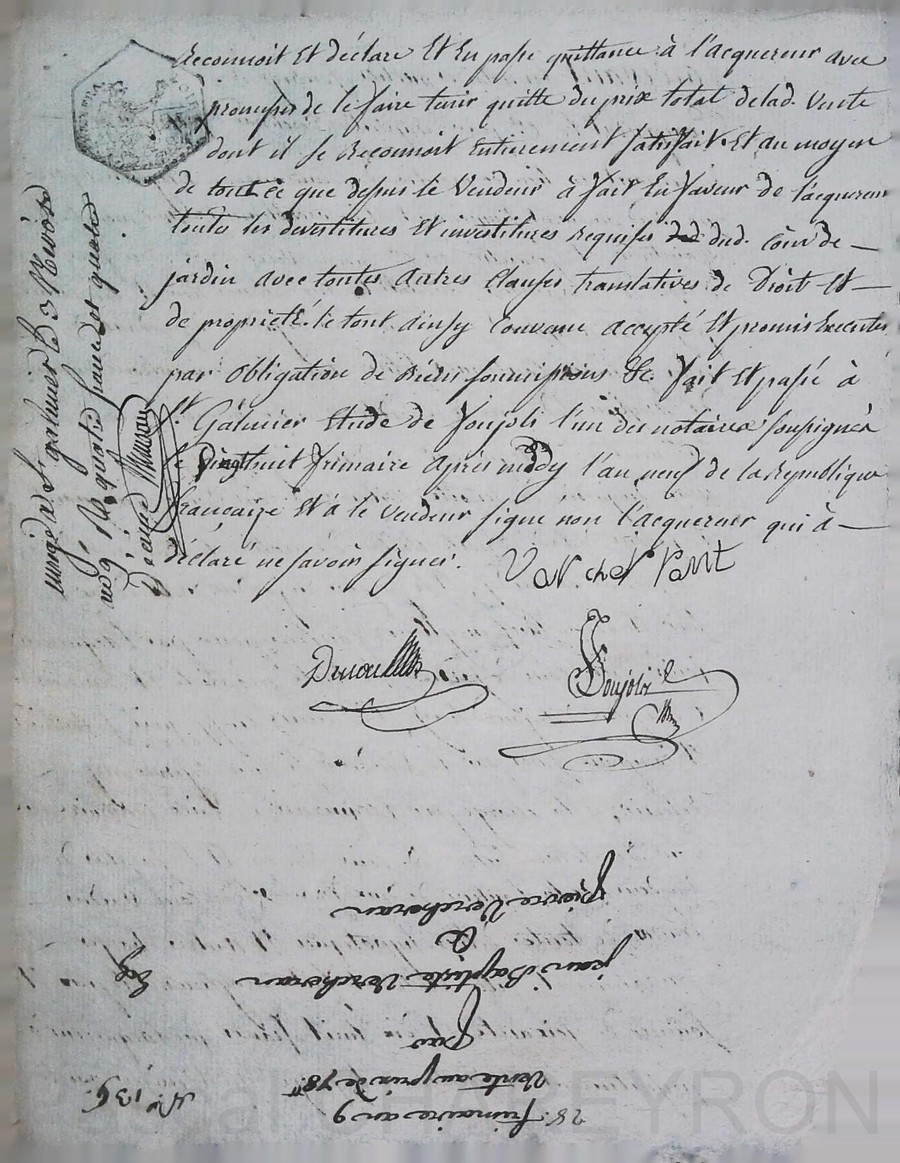 Reconnoit Et déclare Et En passe quittance à l'acquereur avec
promesses de le faire tenir quitte du prix total de lad. Vente
dont il se Reconnoit Entierement satisfait. Et au moyen
de tout ce que dessus le Vendeur à fait En faveur de l'acquereur
toutes les devestitures Et investitures Requises dud. Cour de
jardin avec toutes autres Clauses translatives de Droit Et
de propriété. le tout ainsy Convenu accepté Et promis Executer
par obligation de Biens soumissions &c. fait Et passé à
St. Galmier Etude de Soujoli l'un des notaires soussignés
le vingt huit frimaire après midy l'an neuf de la Republique
française Et à le Vendeur signé non l'acquereur qui à
déclaré ne savoir signer.
Drucullin
Soujoli
St. galmier le 3 Nivose
quatre francs
28. frimaire an 9
Vente au prix de 78
N.° 136
par
jean Baptiste Vercheran
à
pierre Vercheran
CHAREYRON